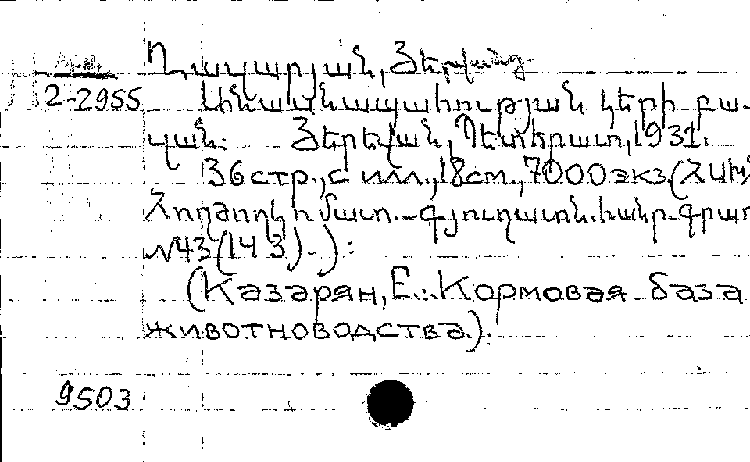 Ղազարյան, Յերվանդ
2-2955 Անասնապահության կերի բա-
զան. Յերեվան, Պետհրատ, 1931.
36стр., с илл., 18см., 7000экз. (ՀԱԽՀ
Հողժողկոմատ.-Գյուղատնտ. հանր. գրադ
№43(143).):
(Казарян, Е.: Кормовая база
животноводства.).
9503